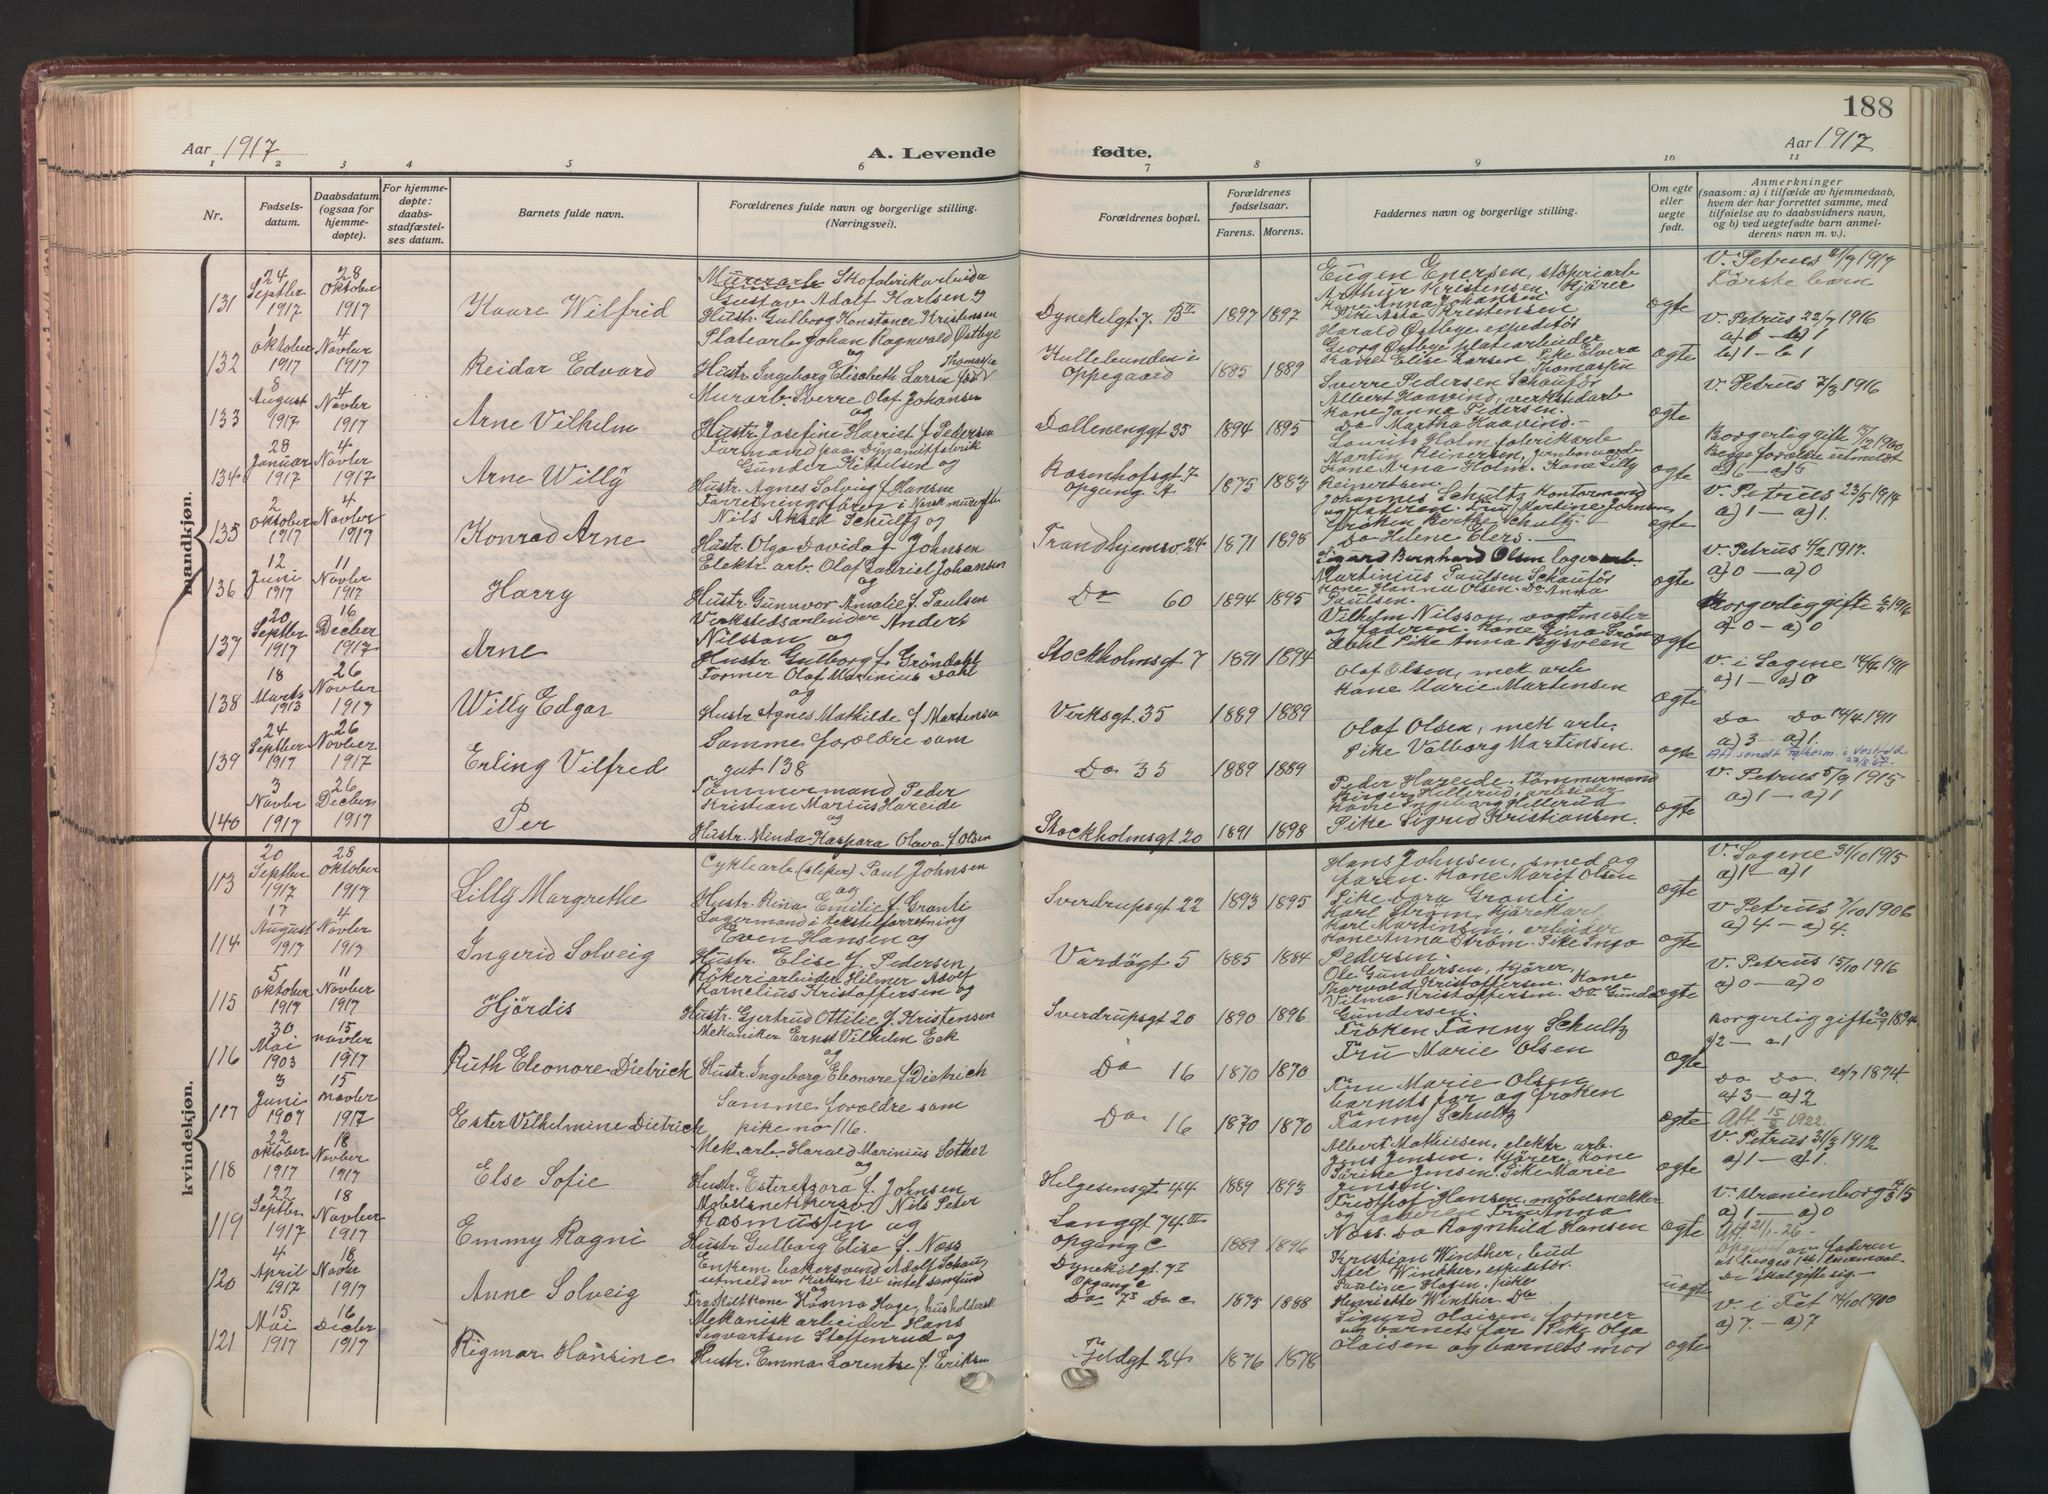 188
Aar 1917
A. Levende
fødte.
Aar 1917
1 2 3 4 5 6 7 8 9 10 11
Nr.
Fødsels-
datum.
Daabsdatum
(ogsaa for
hjemme-
døpte).
For hjemme-
døpte:
daabs-
stadfæstel-
ses datum.
Barnets fulde navn.
Forældrenes fulde navn og borgerlige stilling.
(Næringsvei).
Forældrenes bopæl.
Forældrenes
fødselsaar.
Farens. Morens.
Faddernes navn og borgerlige stilling.
Om egte
eller
uegte
født.
Anmerkninger
(saasom: a) i tilfælde av hjemmedaab,
hvem der har forrettet samme, med
tilføielse av to daabsvidners navn,
og b) ved uegtefødte barn anmel-
derens navn m. v.).
mandkjøn.
131
24 Septber 1917
28 Oktober 1917
Kaare Wilfrid
Murerarb Skofabrikarbeider
Gustav Adolf Karlsen og
Hustr. Gulborg Konstance Kristensen
Dynekilgt. 7. B II
1897 1897
Eugen Enersen, støperiarb
Arthur Kristensen, Kjører
Kone Anna Johansen
Pike Asta Kristensen
egte
V. Petrus 21/7 1917
Første barn
132
1 Oktober 1917
4 Novber 1917
Reidar Edvard
Platearb Johan Ragnvald Østbye
og
Hustr. Ingeborg Elisabeth Larsen født Thomassen
Kullebunden i
Oppegaard
1885 1889
Harald Østbye, expeditør
Georg Østbye platearbeider
Kone Elise Larsen, Pike Elvera
Thomassen
egte
V. Petrus 22/7 1916
b) 1 — b 1
133
8 August 1917
4 Novber 1917
Arne Vilhelm
Murarb. Sverre Olaf Johansen
og
Hustr. Josefine Harriet f. Pedersen
Dællenenggt 35
1894 1895
Sverre Pedersen Schaufør
Albert Kaavind, verkstedarb
Kone Janna Pedersen.
Do Martha Kaavind.
egte
V. Petrus 7/3 1916
134
28 Januar 1917
4 Novber 1917
Arne Willy
Formand paa Dynamitfabrik
Gunder Kittelsen og
Hustr. Agnes Solvig f Hansen
Rosenhofsgt 7
opgang A.
1875 1883
Laurits Holm fabrikarb
Martin Reinersen, jernbanearb
Kone Arna Holm. Kone Lilly
Reinertsen.
egte
Borgerlig gifte 1900
Begge forældre utmeldt
a) 6 — a) 5
135
2 Oktober 1917
4 Novber 1917
Konrad Arne
Forretningsfører i Norsk
Nils Aksel Schultz og
Hustr. Olga Davida f Johnsen
Trondhjemsv. 24
1871 1898
Johannes Schultz Kontormand
og faderen. Fru Martine Johnsen
Frøken Berthe Schultz.
Do Helene Elers.
egte
V. Petrus 23/5 1914
a) 1 — a) 1.
136
12 Juni 1917
11 Novber 1917
Harry
Elektr. arb. Olaf Gabriel Johansen
og
Hustr. Gunnvor Amalie f. Paulsen
Do 60
1894 1895
Sigurd Bernhard Olsen lagerarb.
Martinius Paulsen Schaufør
Kone Hanna Olsen. Do Anna
Paulsen.
egte
V. Petrus 4/2 1917.
a) 0 — a) 0
137
20 Septber 1917
16 Decber 1917
Arne
Verkstedsarbeider Anders
Nilsson og
Hustr. Gulborg f. Gröndahl
Stockholmsgt 7
1891 1894
Vilhelm Nilsson, vogtmester
og faderen. Kone Gina Grön
dahl Pike Anna Rysveen
egte
Borgerlig gifte 1916
a) 0 — a) 0
138
18 Marts 1913
26 Novber 1917
Willy Edgar
Former Olaf Marinius Dahl
og
Hustr. Agnes Mathilde f Martensen
Verksgt. 35
1889 1889
Olaf Olsen, mek arb
Kone Marie Martensen
egte
V. i Sagene 14/4 1911
a) 1 — a) 0
139
24 Septber 1917
26 Novber 1917
Erling Vilfred
Samme forældre som
gut 138
Do 35
1889 1889
Olaf Olsen, mek arb.
Pike Valborg Martinsen.
egte
Do Do 14/4 1911
a) 3 — a) 1.
140
3 Novber 1917
26 Decber 1917
Per
Tømmermand Peder
Kristian Marius Hareide
og
Hustr. Minda Kaspara Olava f Olsen
Stockholmsgt 20
1891 1898
Peder Hareide. tømmermand
Birger Hillerud, arbeider
Kone Ingeborg Hillerud
Pike Sigrid Kristiansen.
egte
V. Petrus 5/9 1915
a) 1 — a) 1
kvindekjøn.
113
20 Septber 1917
28 Oktober 1917
Lilly Margrethe
Cyklearb (sliper) Paul Johnsen
og
Hustr. Rina Emilie f. Granli
Sverdrupsgt 22
1893 1895
Hans Johnsen, smed og
faren. Kone Marit Olsen
Pike Dora Granli
egte
V. Sagene 31/10 1915
a) 1 — a) 1
114
17 August 1917
4 Novber 1917
Ingerid Solveig
Lagermand i tekstilforretning
Even Hansen og
Hustr. Elise f. Pedersen
Vardøgt 5
1885 1884
Karl Strøm, Kjørekarl
Karl Martinsen, arbeider
Kone Anna Strøm. Pike Inga
Pedersen.
egte
V Petrus 7/10 1906
a) 4 — a) 4.
115
5 Oktober 1917
11 Novber 1917
Hjördis
Røkeriarbeider Hilmer Adolf
Kornelius Kristoffersen og
Hustr. Gjertrud Ottilie f. Kristensen
Sverdrupsgt 20
1890 1896
Ole Gundersen, kjører,
Thorvald Kristoffersen. Kone
Vilma Kristoffersen. Do Gunda
Gundersen.
egte
V. Petrus 15/10 1916
a) 0 — a) 0
116
30 Mai 1903
15 novber 1917
Ruth Eleonore Dietrich
Mekaniker Ernst Vilhelm Eek
og
Hustr. Ingeborg Eleonore f Dietrich
Do 16
1870 1870
Frøken Fanny Schultz
Fru Marie Olsen
egte
Borgerlig gifte 20/7 1894
a) 2 — a 1
117
3 Juni 1907
15 novber 1917
Ester Vilhelmine Dietrich
Samme forældre som
pike no 116.
Do 16
1870 1870
Fru Marie Olsen
barnets far og frøken
Fanny Schultz
egte
Do Do. 20/7 1894.
a) 3 — a) 2
Att 15/8 1922
118
22 Oktober 1917
18 Novber 1917
Else Sofie
Mek. arb Harald Marinius Sæther
og
Hustr. Ester Azora f. Johnsen
Helgesensgt 44
1889 1893
Albert Mathiesen, elektr arb.
Jens Jensen, Kjører, Kone
Tarina Jensen. Pike Marie
Jensen.
egte
V. Petrus 31/3 1912
a) 1 — a) 1.
119
27 Septbr 1917
18 Novber 1917
Emmy Ragni
Møbelsnekkersv Nils Peter
Rasmussen og
Hustr Gulborg Elise f. Næss
Langgt 74 III
Opgang C
1889 1896
Fridthof Hansen, møbelsnekker
og faderen Fru Anna
Næss. Do Ragnhild Hansen
egte
V. Uranienborg 15
a) 1 — a) 0
Att 2/1 - 26.
120
4 April 1917
18 Novbr 1917
Anne Solveig
Enkem. bakersvend Adolf Schau
utmeld av Kirken til intet samfund
og
Fraskilt Kone Hanna Hage, husholderske
Dynekilgt. 7 I
Opgang C
Do 7 I Do C
1875 1888
Kristian Winther, bud
Axel Winther, expeditør.
Pauline Hagen, pike
Henriette Winther. Do
uegte
Opgivet av faderen
De skal gifte sig.
121
15 Mai 1917
16 Decber 1917
Rigmor Hansine
Mekanisk arbeider Hans
Segvartsen Steffenrud og
Hustr. Emma Lorentse f. Eriksen
Fjeldgt 24
1876 1878
Sigurd Olaisen, former
og barnets far Pike Olga
Olaisen og barnets mor
egte
V. i Fet 14/10 1900
a) 7. — a) 7